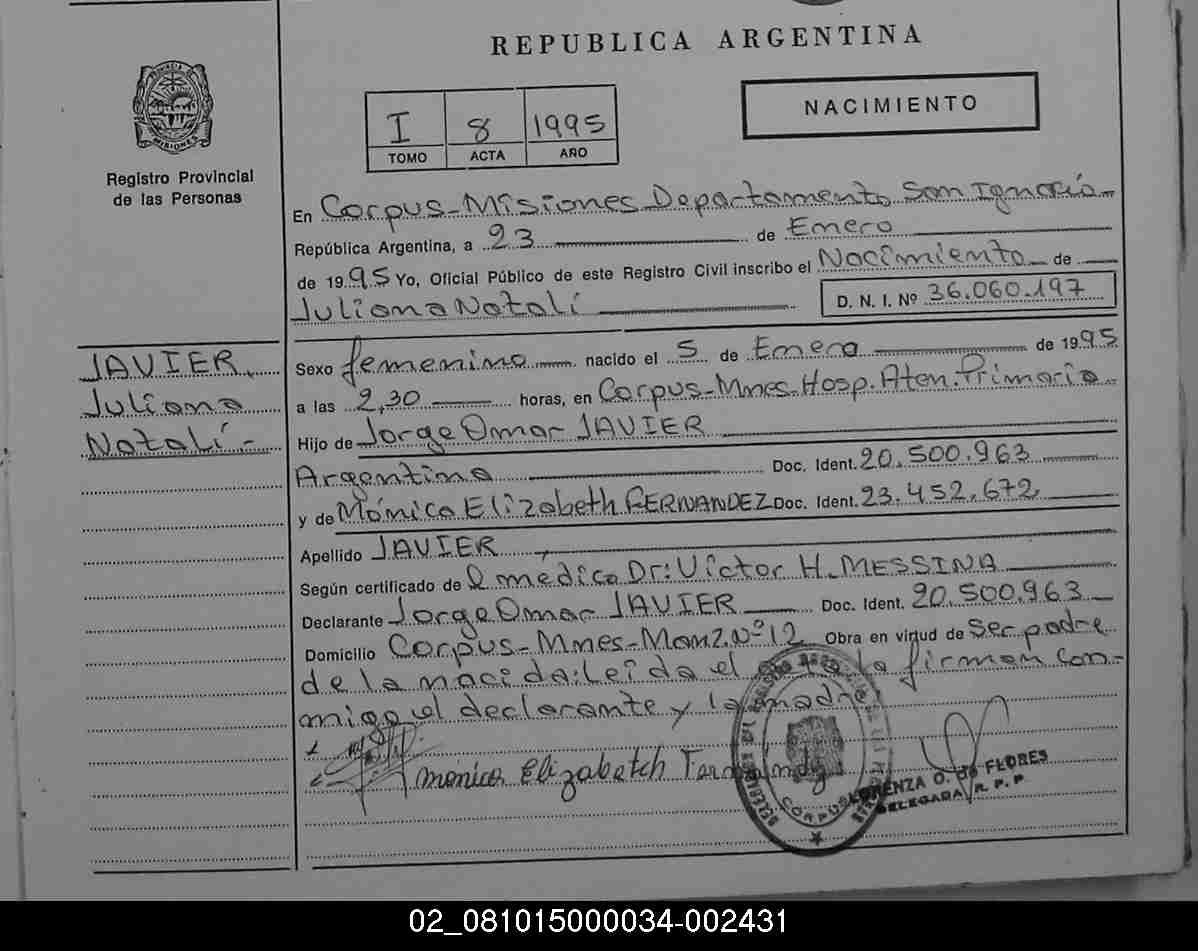 REPUBLICA ARGENTINA
PROVINCIA DE
MISIONES
Registro Provincial
de las Personas
I 8 1995
TOMO ACTA AÑO
NACIMIENTO
En Corpus-Misiones Departamento San Ignacio
República Argentina, a 23 de Enero
de 1995 Yo, Oficial Público de este Registro Civil inscribo el Nacimiento de
Juliana Natalí
D. N. I. Nº 36.060.197
JAVIER,
Juliana
Natalí-
Sexo femenino nacido el 5 de Enero de 1995
a las 2,30 horas, en Corpus-Mnes. Hosp. Aten. Primaria
Hijo de Jorge Omar JAVIER
Argentino Doc. Ident. 20.500.963
y de Mónica Elizabeth FERNANDEZ Doc. Ident. 23.452.672
Apellido JAVIER
Según certificado de el médico Dr: Víctor H. MESSINA
Declarante Jorge Omar JAVIER Doc. Ident. 20.500.963
Domicilio Corpus-Mnes-Manz.Nº12 Obra en virtud de Ser padre
de la nacida: Leída el la firman con-
migo el declarante y la madre
Monica Elizabetch
CORPUS
LORENZA O. de FLORES
DELEGADA R. P. P.
02_081015000034-002431